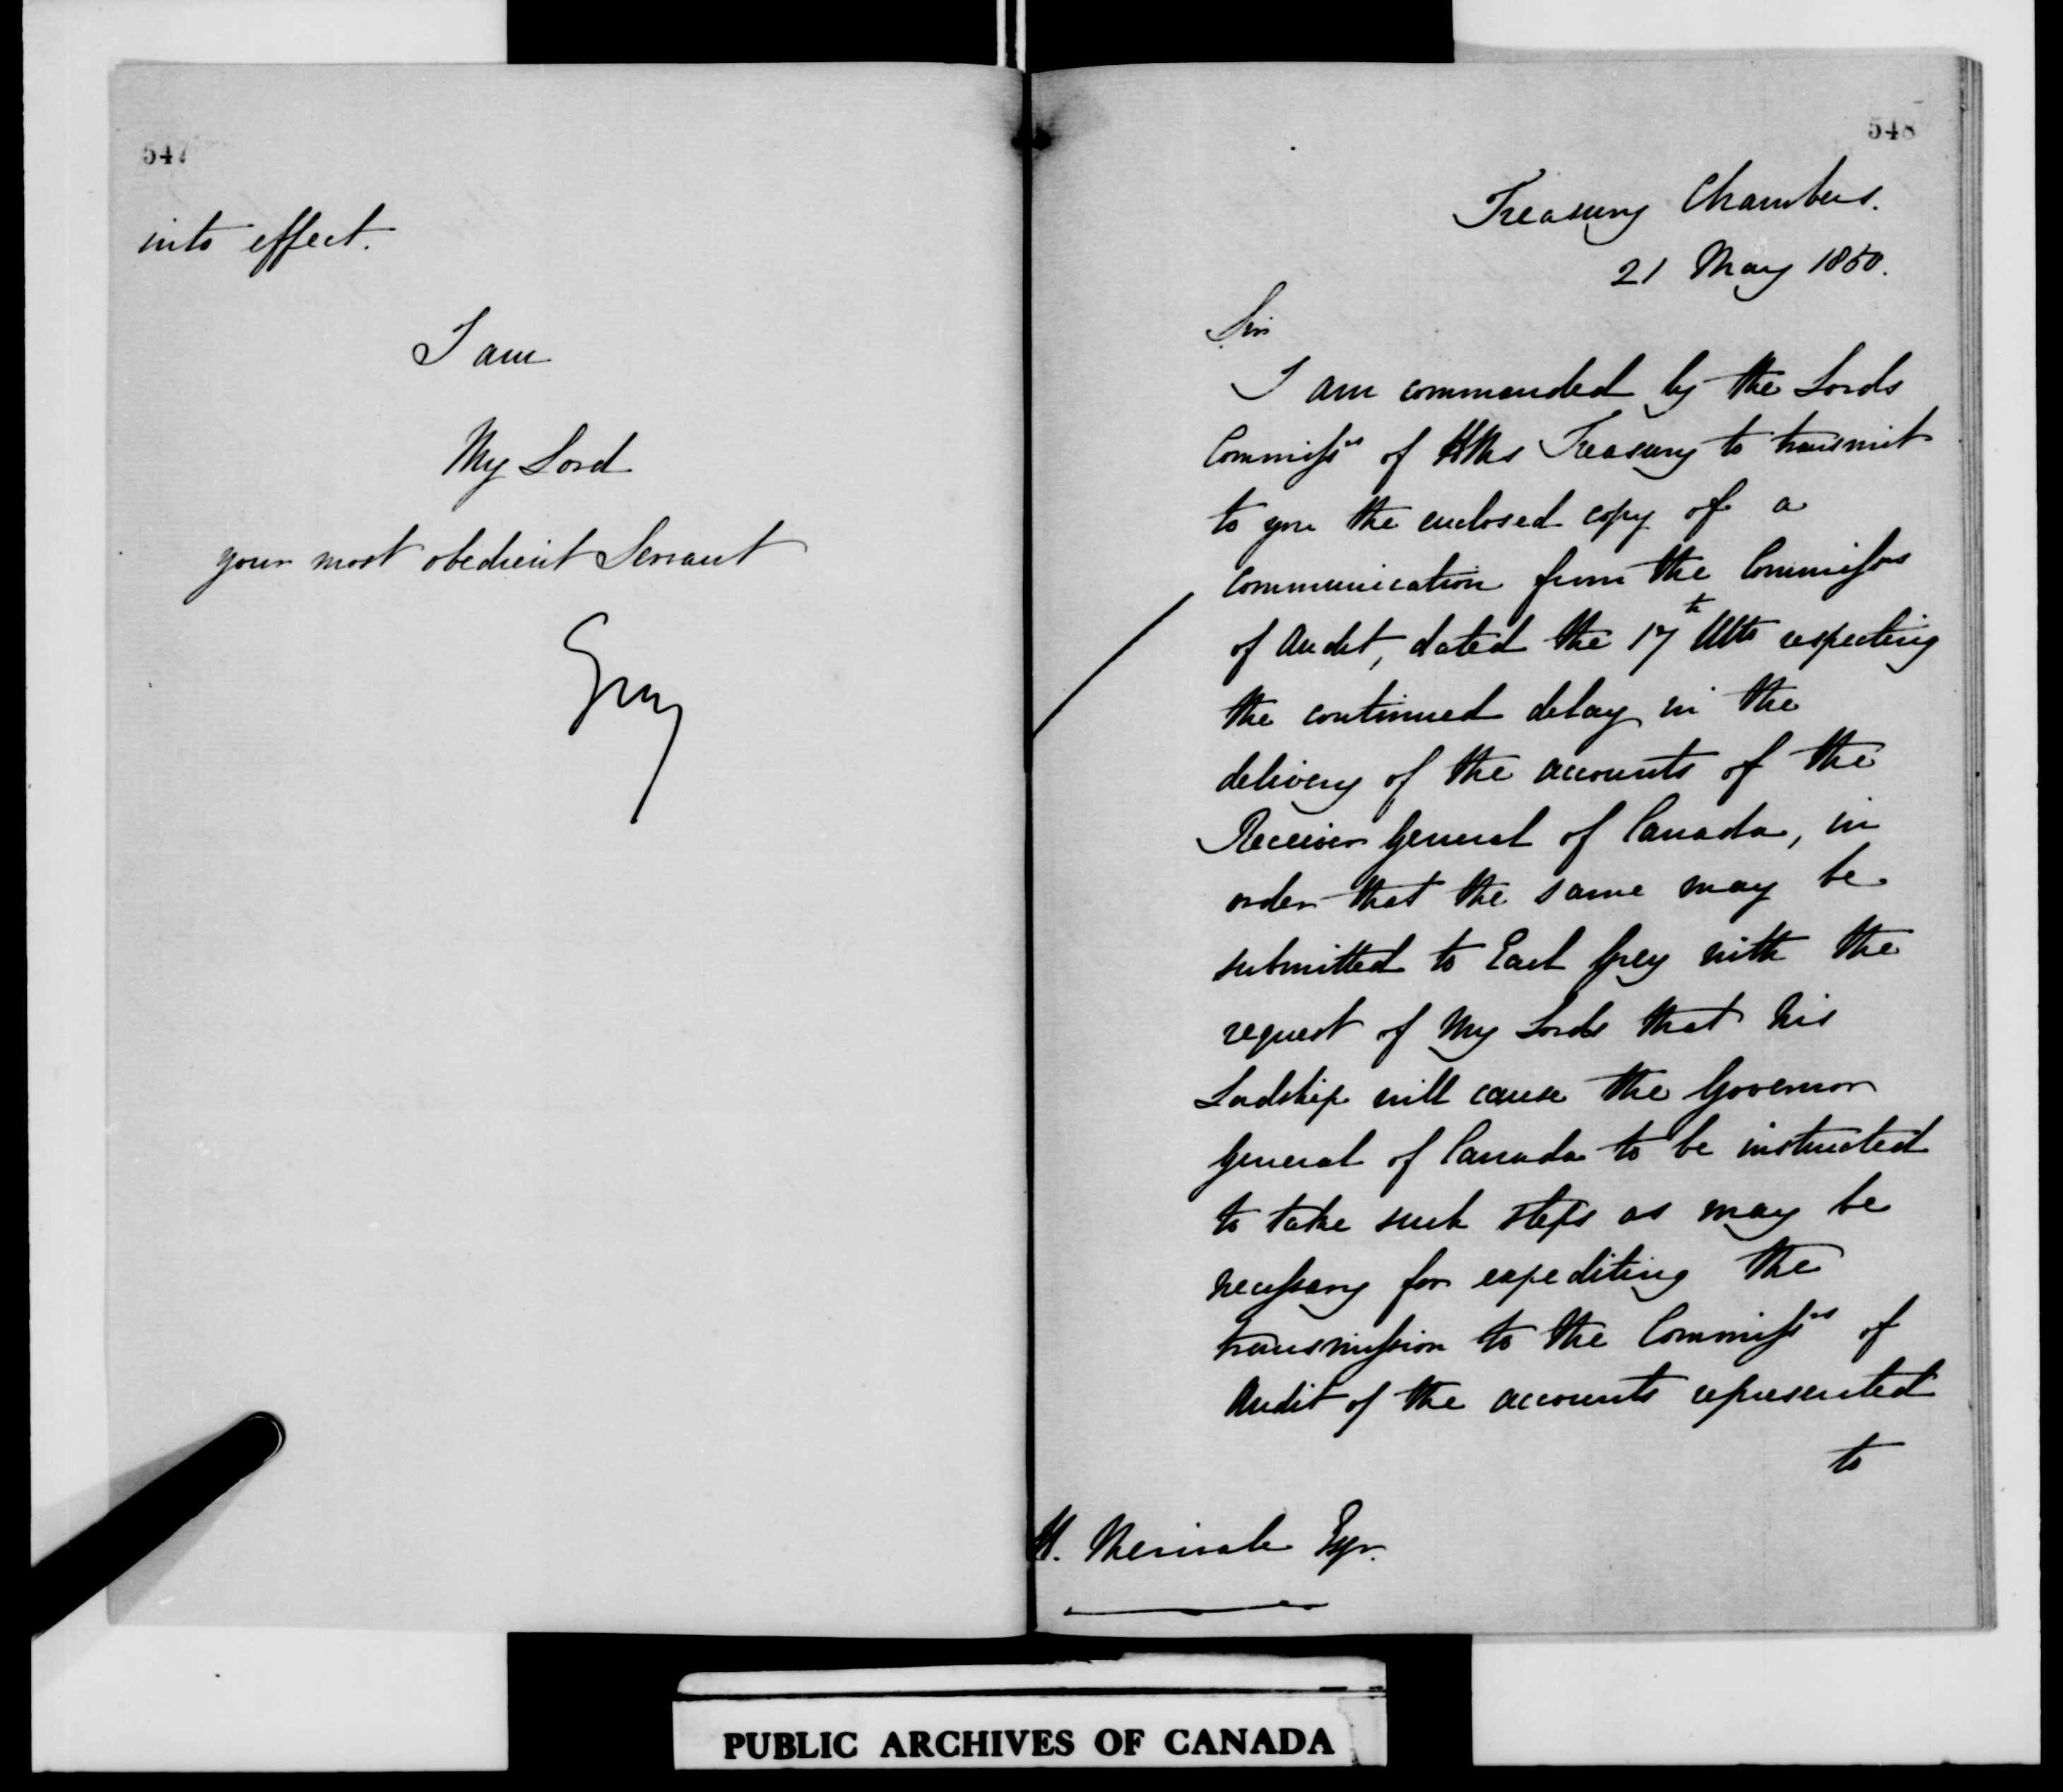 547
into effect.
I am
My Lord
your most obedient Servant
Grey
548
Treasury Chambers.
21 May 1850.
Sir
I am commanded by the Lords
Commissrs of HMs Treasury to transmit
to you the enclosed copy of a
communication from the Commissrs
of Audit, dated the 17th Ulto respecting
the continued delay in the
delivery of the accounts of the
Receiver General of Canada, in
order that the same may be
submitted to Earl Grey with the
request of My Lords that his
Lordship will cause the Governor
General of Canada to be instructed
to take such steps as may be
necessary for expediting the
transmission to the Commissrs of
Audit of the accounts represented
to
H. Merivale Esqr.
PUBLIC ARCHIVES OF CANADA